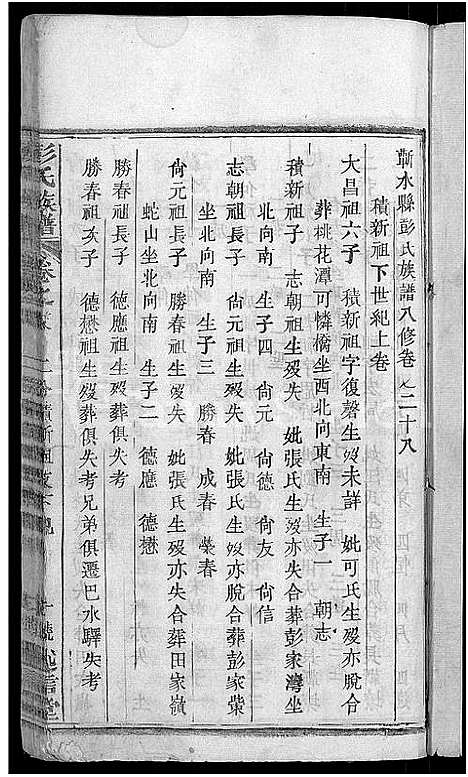 蘄水縣彭氏族譜八修卷之二十八
積新祖下世紀上卷
大昌祖六子 積新祖字復磬生歿未詳 妣可氏生歿亦脫合
葬桃花潭可憐橋坐西北向東南 生子一 朝志
積新子 志朝祖生歿失 妣張氏生歿亦失合葬彭家灣坐
北向南 生子四 尙元 尙德 尙友 尙信
志朝祖長子 尙元祖生歿失 妣張氏生歿脫合葬彭家柴
坐北向南 生子三 勝春 成春 榮春
尙元祖長子 勝春祖生歿失 妣張氏生歿亦失合葬田家嶺
蛇山坐北向南 生子二 德應 德懋
勝春祖長子 德應祖生歿失考
勝春祖次子 德懋祖生歿葬俱失考兄弟俱遷巴水驛失考
彭氏族譜
述信堂